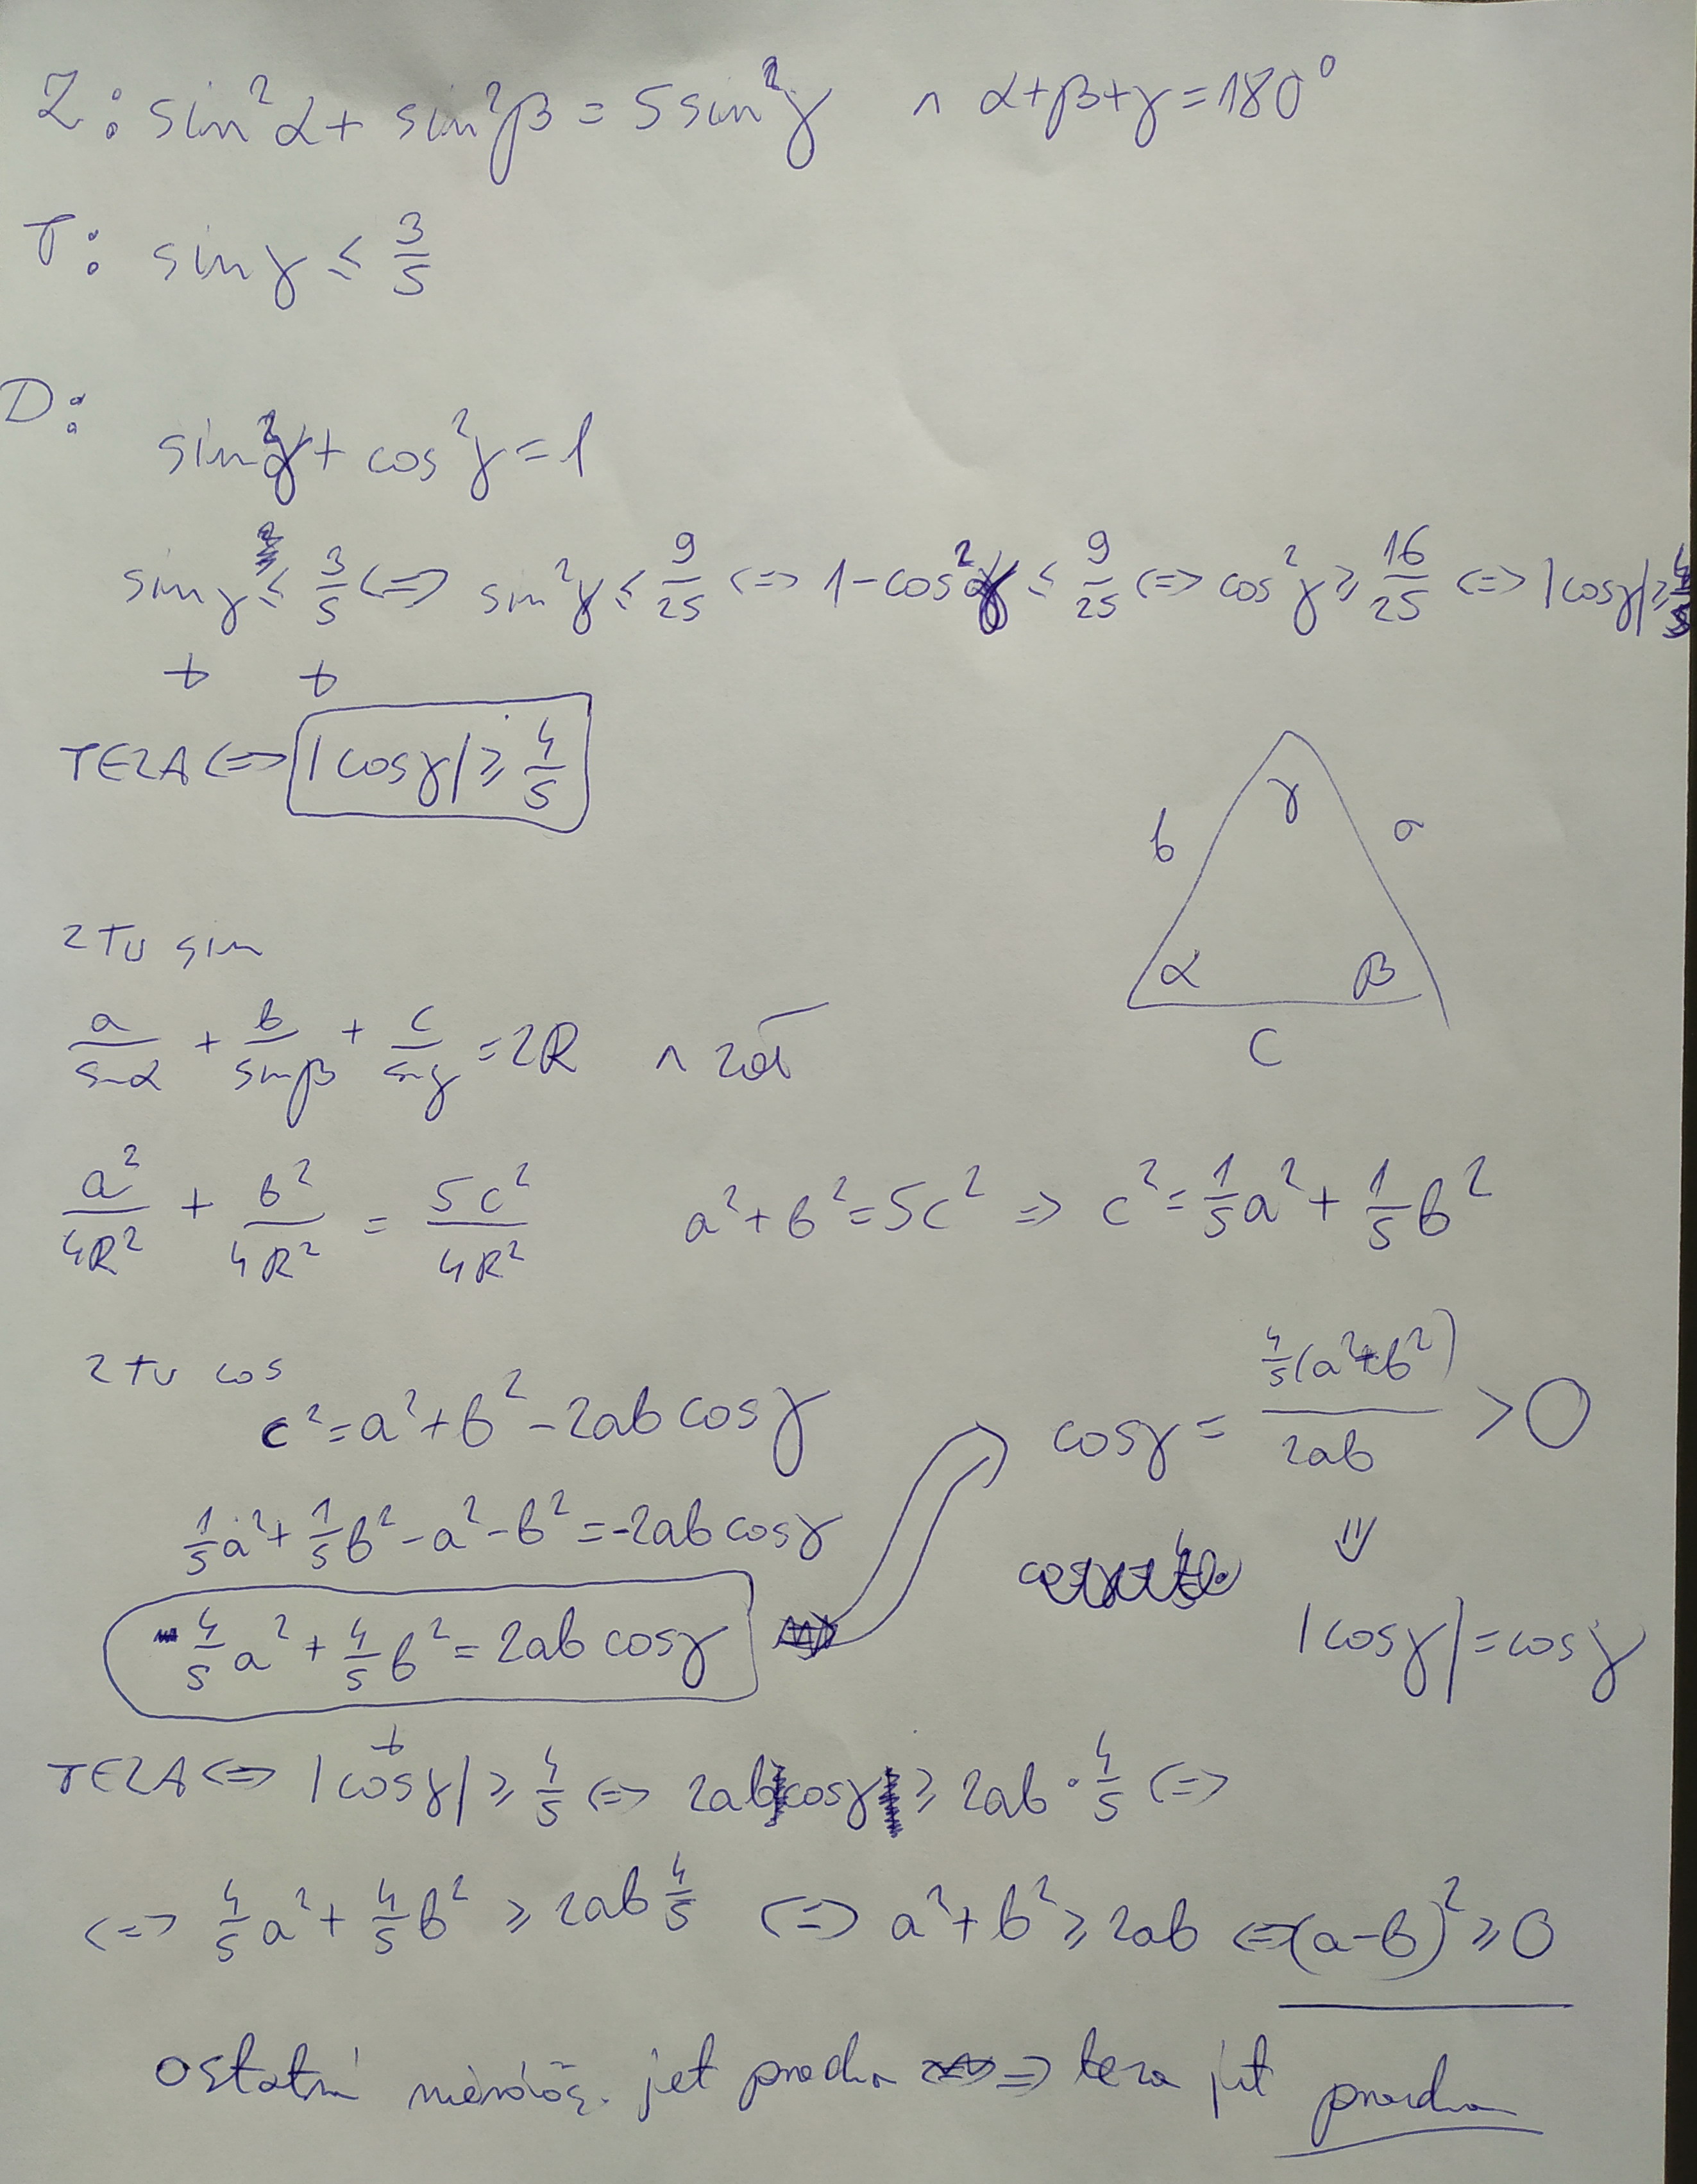 Z: sin²α + sin²β = 5sin²γ ∧ α+β+γ=180°
T: sinγ ≤ 3/5
D:
sin²γ + cos²γ = 1
sinγ ≤ 3/5 <=> sin²γ ≤ 9/25 <=> 1-cos²γ ≤ 9/25 <=> cos²γ ≥ 16/25 <=> |cosγ| ≥ 4/5
+ +
TEZA <=> |cosγ| ≥ 4/5
γ
b a
α β
c
z tw sin
a/sinα + b/sinβ + c/sinγ = 2R ∧ zał
a²/4R² + b²/4R² = 5c²/4R² a²+b²=5c² => c²=1/5a²+1/5b²
z tw cos
c²=a²+b²-2ab cosγ
cosγ = 4/5(a²+b²)/2ab > 0
1/5a²+1/5b²-a²-b²=-2ab cosγ
⇓
4/5a²+4/5b²=2ab cosγ
|cosγ|=cosγ
+
TEZA <=> |cosγ| ≥ 4/5 <=> 2ab cosγ ≥ 2ab·4/5 <=>
<=> 4/5a²+4/5b² ≥ 2ab 4/5 <=> a²+b² ≥ 2ab <=> (a-b)² ≥ 0
ostatni jet prawda => teza jst prawda